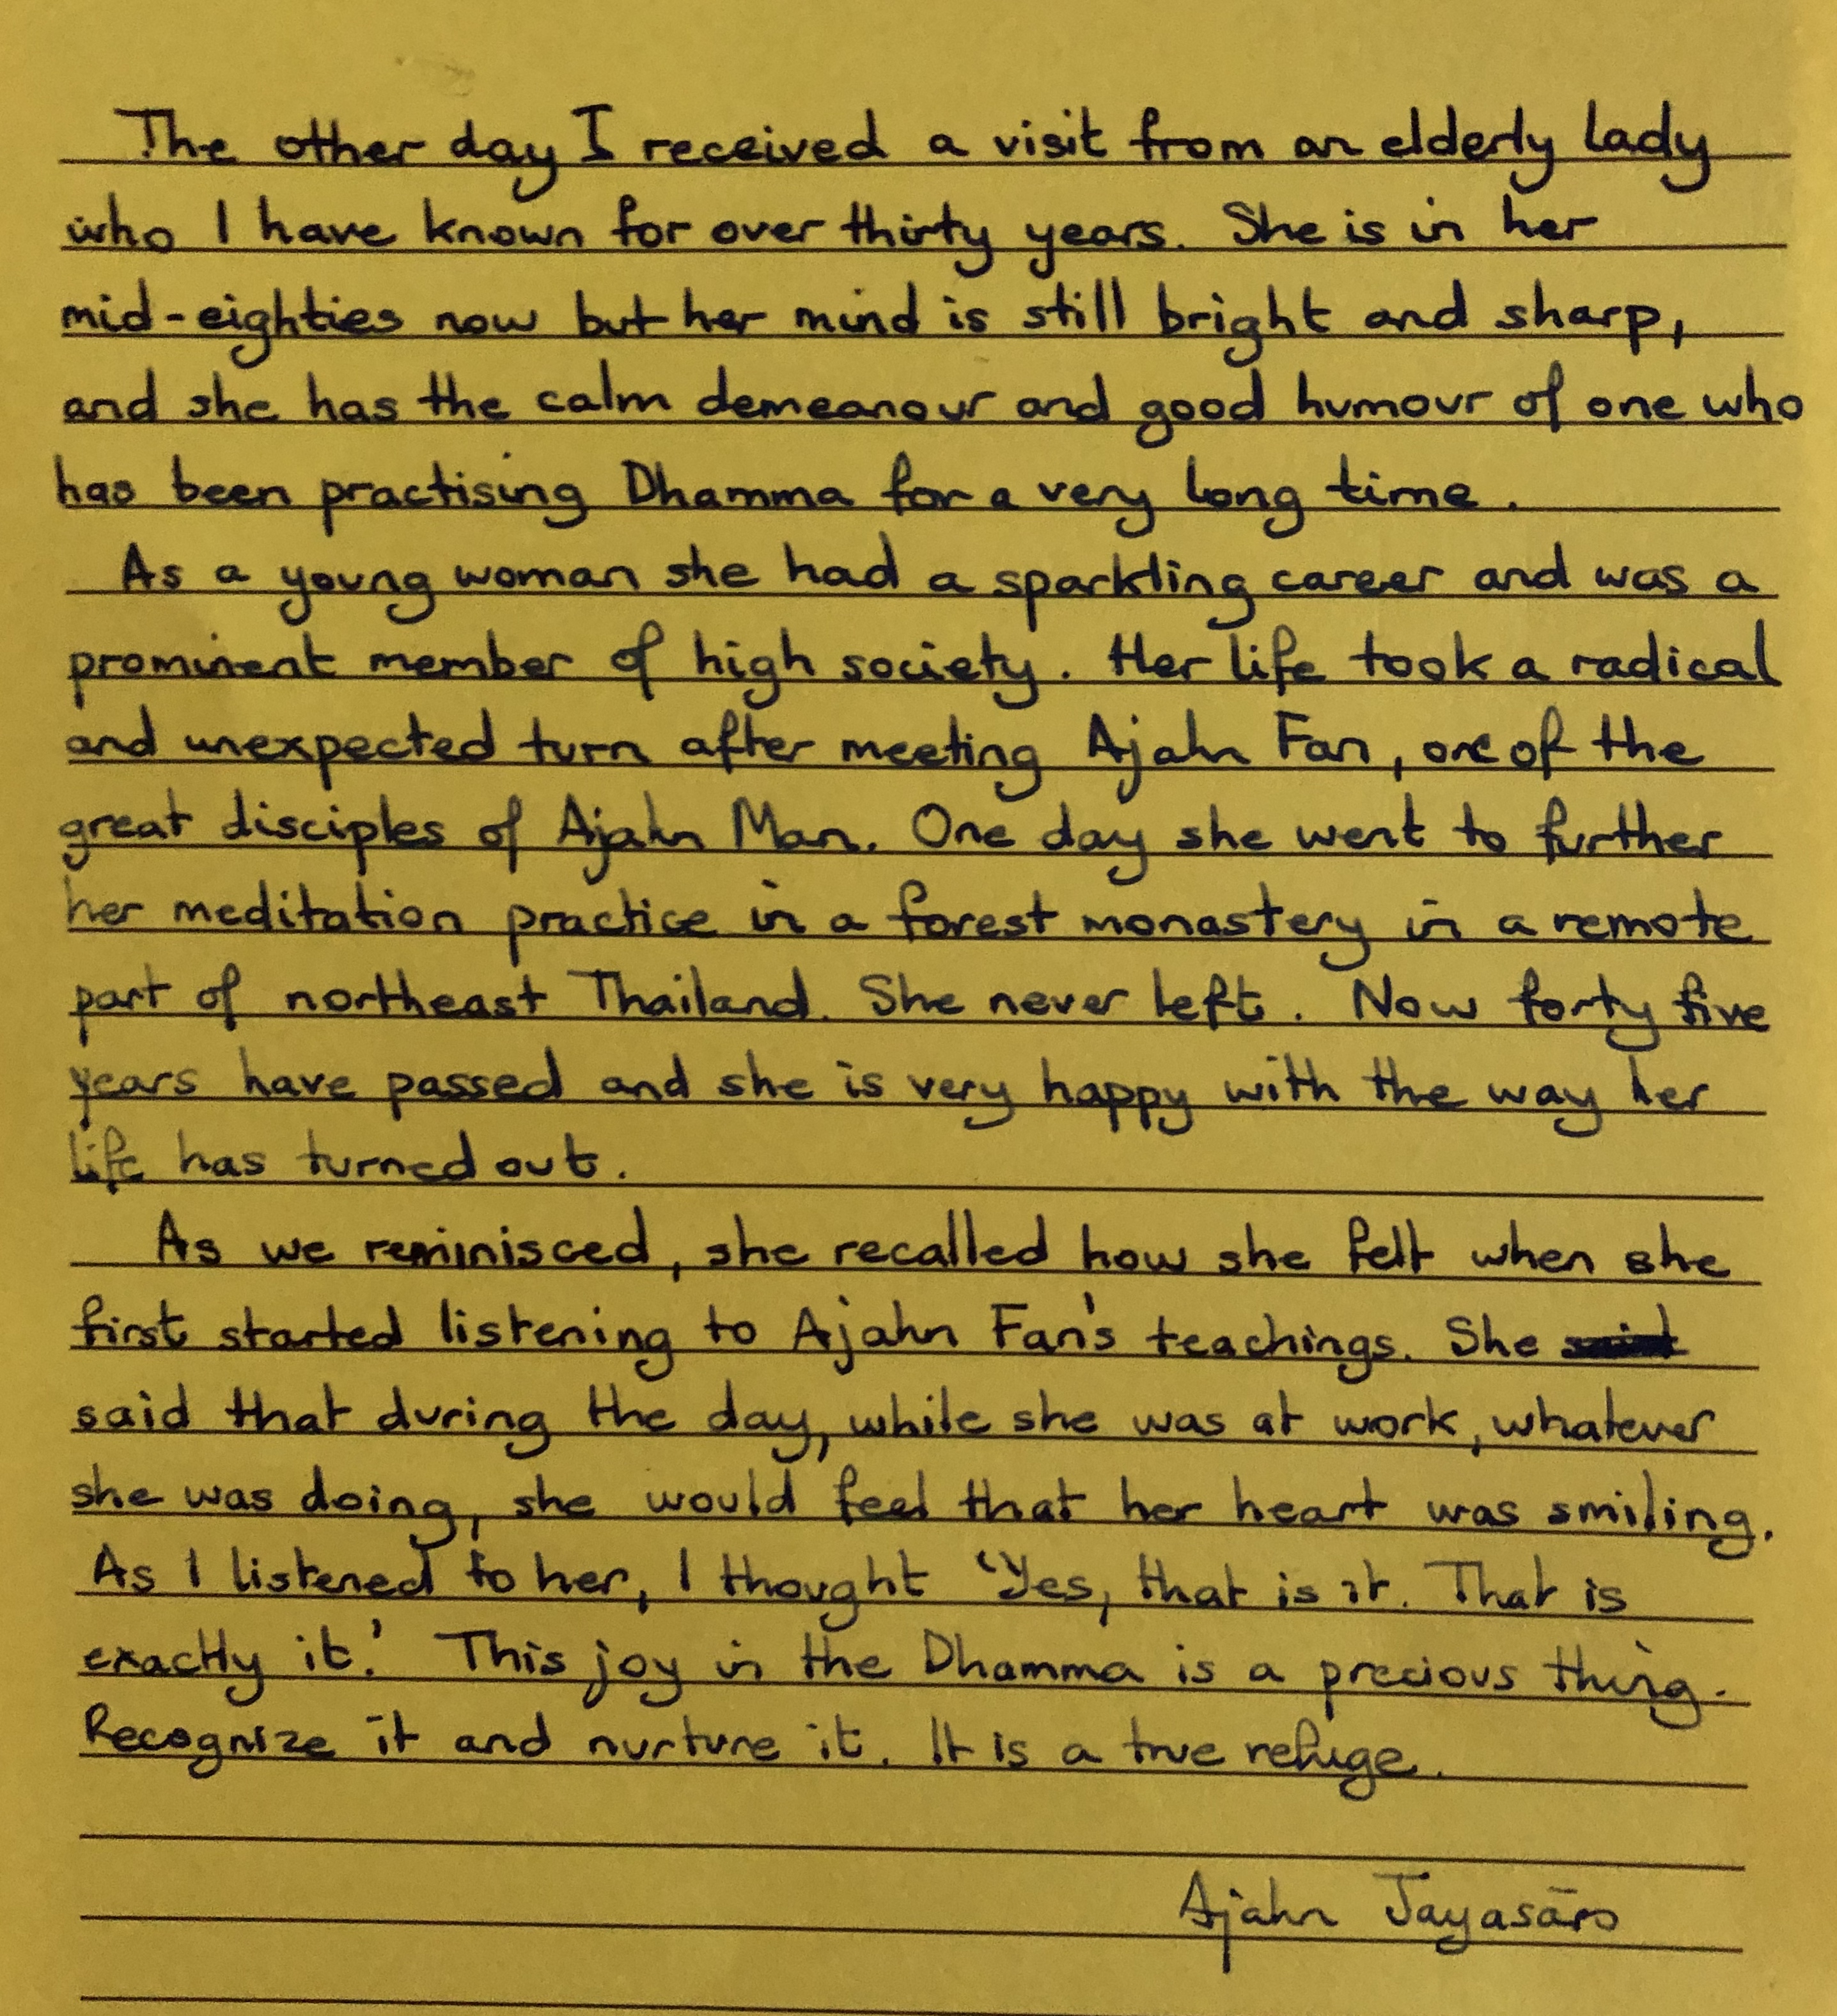 The other day I received a visit from an elderly lady
who I have known for over thirty years. She is in her
mid-eighties now but her mind is still bright and sharp,
and she has the calm demeanour and good humour of one who
has been practising Dhamma for a very long time.
As a young woman she had a sparkling career and was a
prominent member of high society. Her life took a radical
and unexpected turn after meeting Ajahn Fan, one of the
great disciples of Ajahn Man. One day she went to further
her meditation practice in a forest monastery in a remote
part of northeast Thailand. She never left. Now forty five
years have passed and she is very happy with the way her
life has turned out.
As we reminisced, she recalled how she felt when she
first started listening to Ajahn Fan's teachings. She
said that during the day, while she was at work, whatever
she was doing, she would feel that her heart was smiling.
As I listened to her, I thought 'Yes, that is it. That is
exactly it.' This joy in the Dhamma is a precious thing.
Recognize it and nurture it. It is a true refuge.
Ajahn Jayasāro